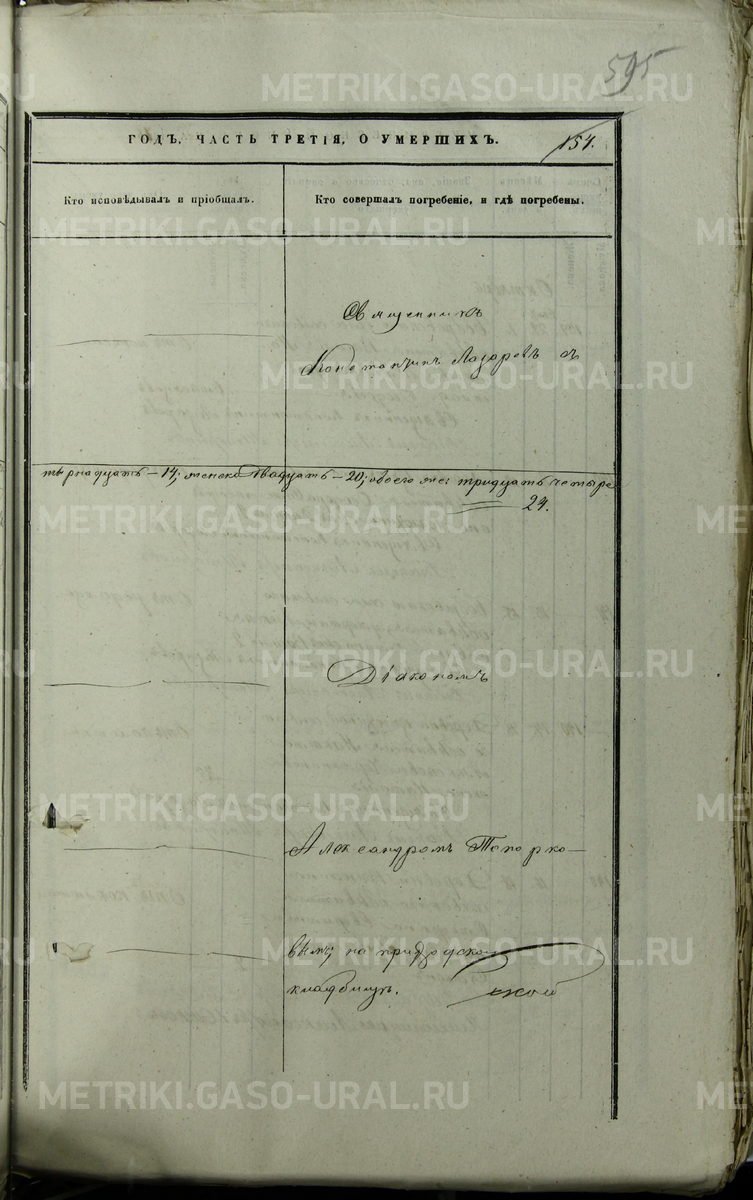 595
ГОДЪ, ЧАСТЬ ТРЕТІЯ, О УМЕРШИХЪ. 154.
Кто исповѣдывалъ и пріобщалъ. Кто совершалъ погребеніе, и гдѣ погребены.
Священникъ
Константинъ Лазаревъ съ
тырнадцать – 14; женска двадцать – 20; обоего же: тридцать четыре
24.
Діакономъ
Александромъ Топорко–
вымъ на приходскомъ
кладбищѣ.
METRIKI.GASO-URAL.RU